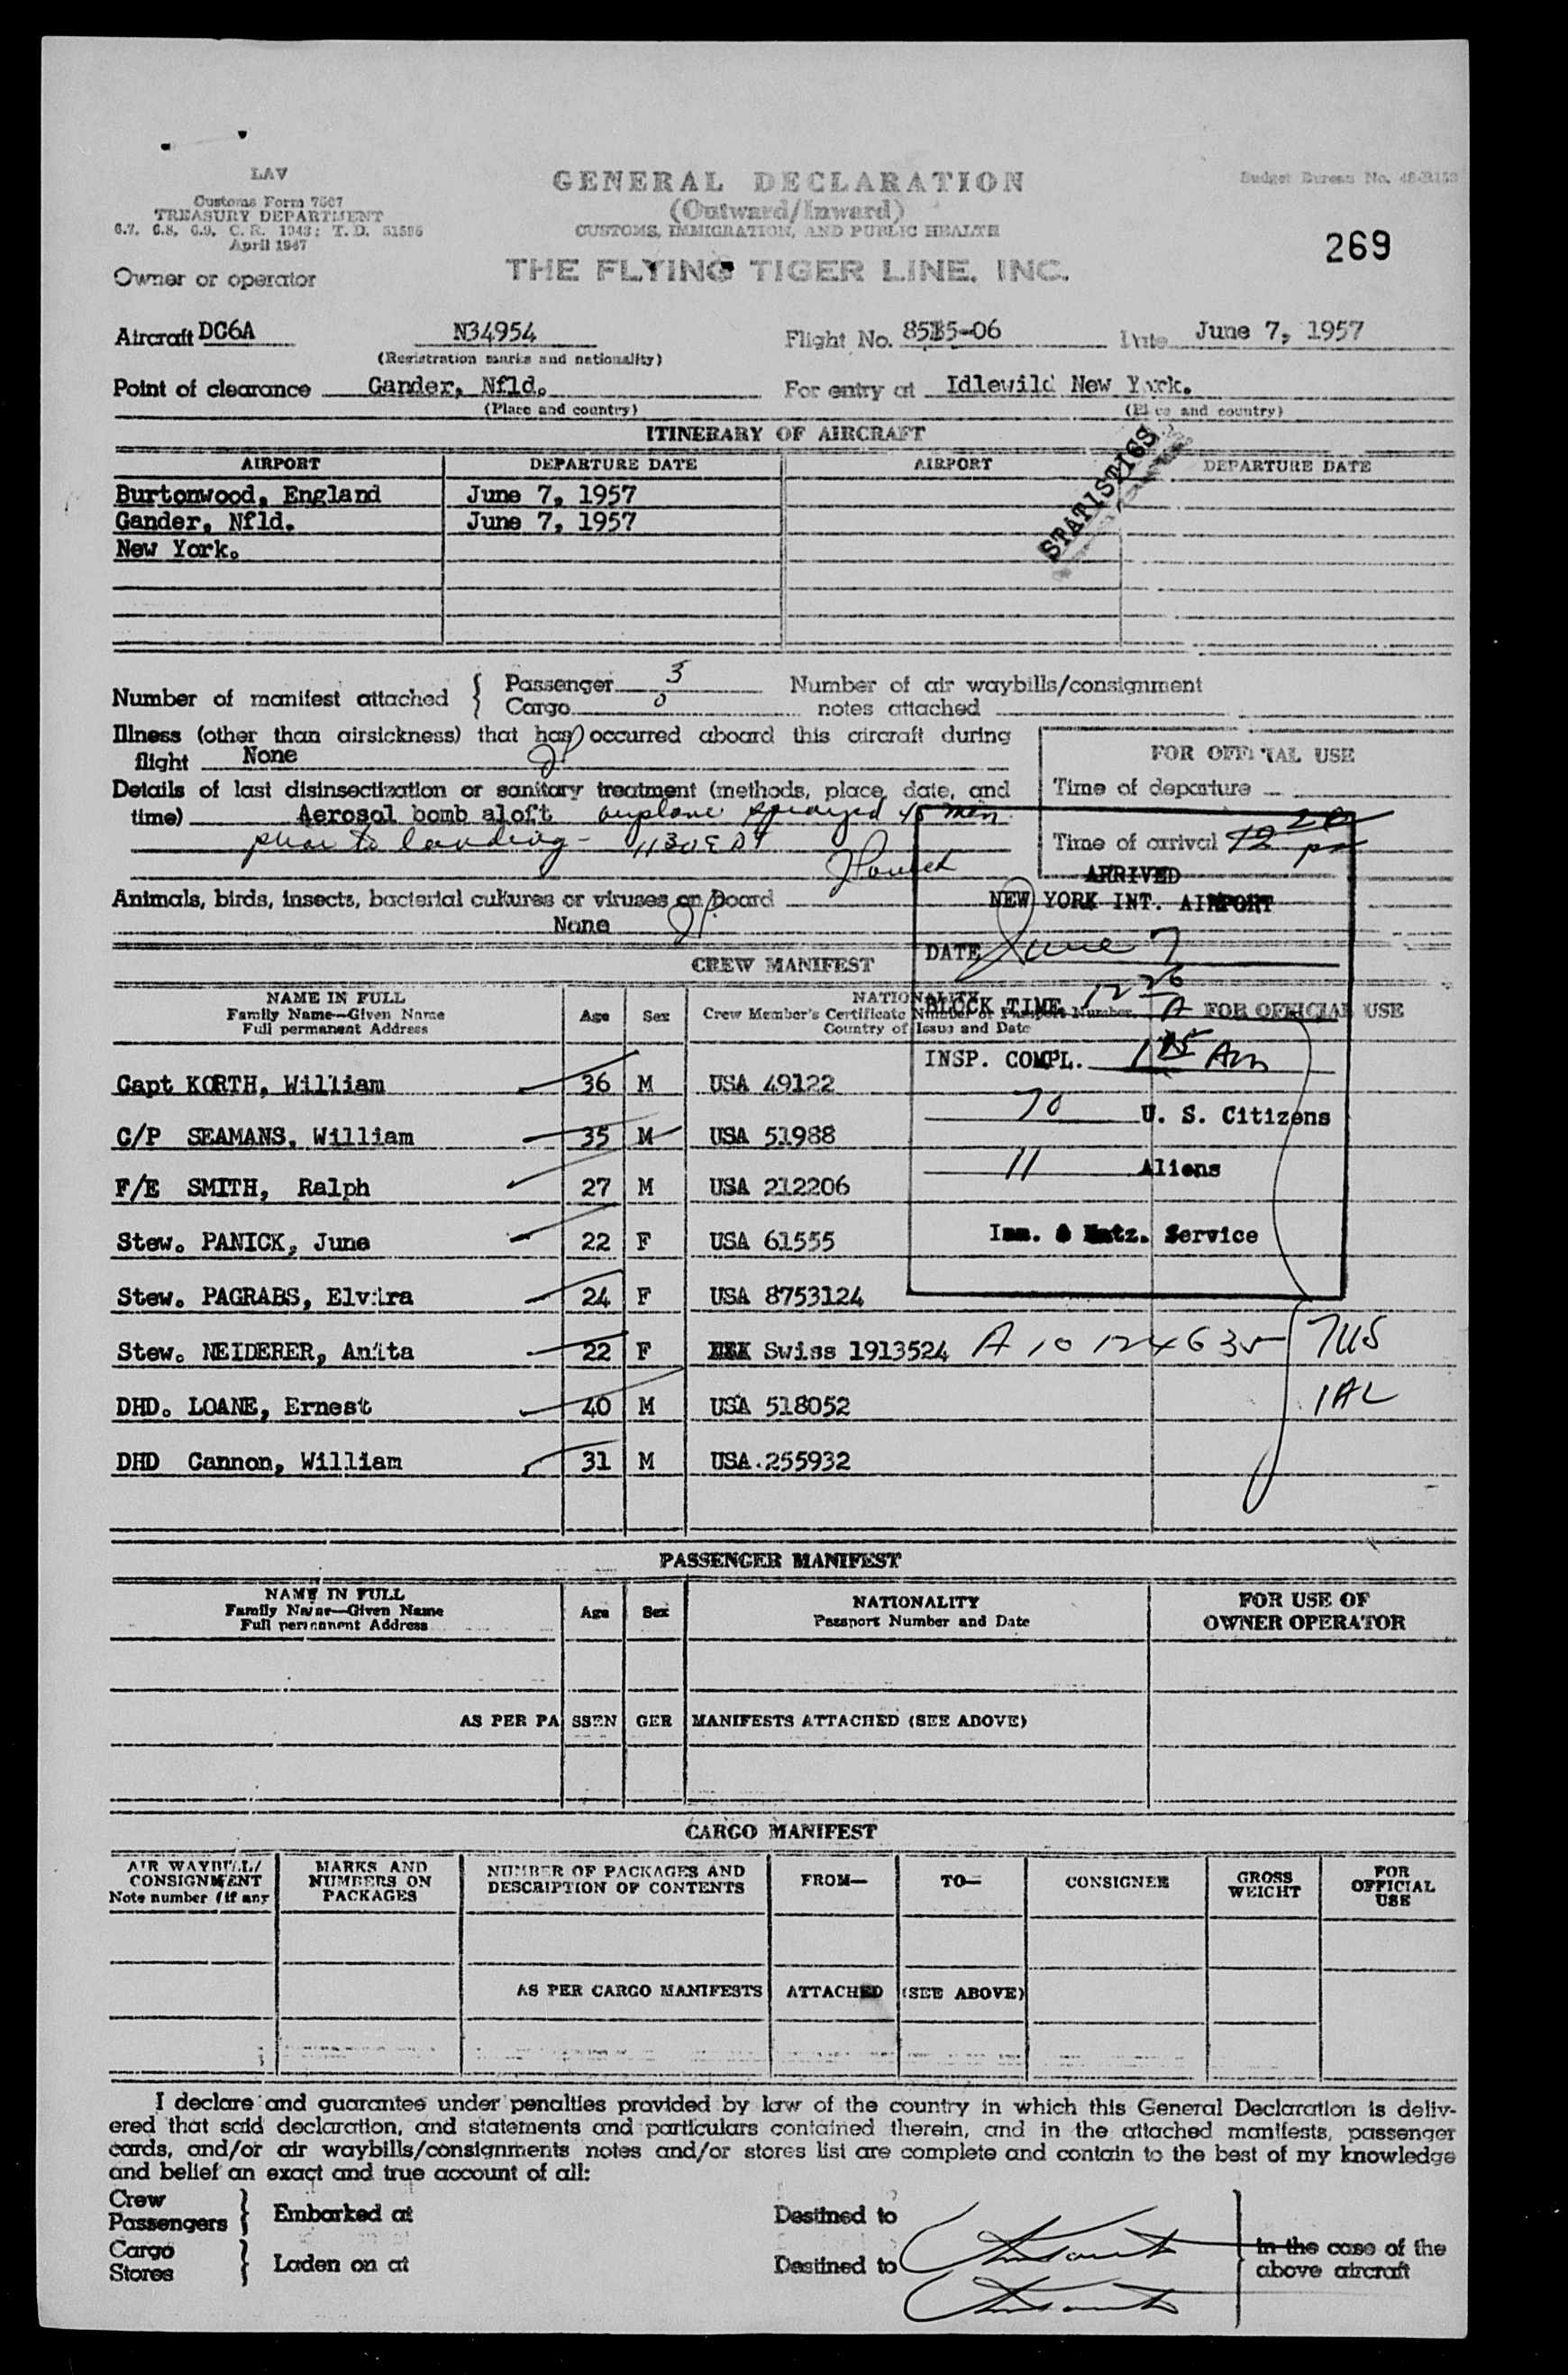 LAV
Customs Form 7507
TREASURY DEPARTMENT
6.7, 6.8, 6.9, C. R. 1943: T. D. 51596
April 1947
GENERAL DECLARATION
(Outward/Inward)
CUSTOMS, IMMIGRATION, AND PUBLIC HEALTH
THE FLYING TIGER LINE, INC.
Budget Bureau No.
269
Owner or operator
Aircraft DC6A N34954 Flight No. Date June 7, 1957
(Registration marks and nationality)
Point of clearance Gander, Nfld. For entry at Idlewild New York.
(Place and country) (Place and country)
ITINERARY OF AIRCRAFT
AIRPORT DEPARTURE DATE AIRPORT DEPARTURE DATE
STATISTICS
Burtonwood, England June 7, 1957
Gander, Nfld. June 7, 1957
New York.
Number of manifest attached { Passenger 3
Cargo 0
Number of air waybills/consignment
notes attached
Illness (other than airsickness) that has occurred aboard this aircraft during
flight None
Details of last disinsectization or sanitary treatment (methods, place, date, and
time) Aerosol bomb aloft airplane sprayed 45 min
prior to landing - 1130 EDT
FOR OFFICIAL USE
Time of departure
Time of arrival
Animals, birds, insects, bacterial cultures or viruses on board
None
ARRIVED
NEW YORK INT. AIRPORT
DATE June 7
BLOCK TIME 12 26 A
INSP. COMPL. Am
70 U. S. Citizens
11 Aliens
Imm. & Natz. Service
CREW MANIFEST
NAME IN FULL
Family Name—Given Name
Full permanent Address
Age Sex
NATIONALITY
Crew Member's Certificate Number or Passport Number
Country of Issue and Date
FOR OFFICIAL USE
Capt KORTH, William 36 M USA 49122
C/P SEAMANS, William 35 M USA 51988
F/E SMITH, Ralph 27 M USA 212206
Stew. PANICK, June 22 F USA 61555
Stew. PAGRABS, Elvira 24 F USA 8753124
Stew. NEIDERER, Anita 22 F Swiss 1913524 A 10 124 635 7US
DHD. LOANE, Ernest 40 M USA 518052 1AL
DHD Cannon, William 31 M USA.255932
PASSENGER MANIFEST
NAME IN FULL
Family Name—Given Name
Full permanent Address
Age Sex
NATIONALITY
Passport Number and Date
FOR USE OF
OWNER OPERATOR
AS PER PASSENGER MANIFESTS ATTACHED (SEE ABOVE)
CARGO MANIFEST
AIR WAYBILL/
CONSIGNMENT
Note number (if any
MARKS AND
NUMBERS ON
PACKAGES
NUMBER OF PACKAGES AND
DESCRIPTION OF CONTENTS
FROM—
TO—
CONSIGNEE
GROSS
WEIGHT
FOR
OFFICIAL
USE
AS PER CARGO MANIFESTS ATTACHED (SEE ABOVE)
I declare and guarantee under penalties provided by law of the country in which this General Declaration is deliv-
ered that said declaration, and statements and particulars contained therein, and in the attached manifests, passenger
cards, and/or air waybills/consignments notes and/or stores list are complete and contain to the best of my knowledge
and belief an exact and true account of all:
Crew
Passengers } Embarked at Destined to
Cargo
Stores } Laden on at Destined to
in the case of the
above aircraft